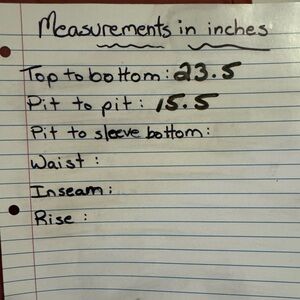 Measurements in inches
Top to bottom: 23.5
Pit to pit: 15.5
Pit to sleeve bottom:
Waist:
Inseam:
Rise: